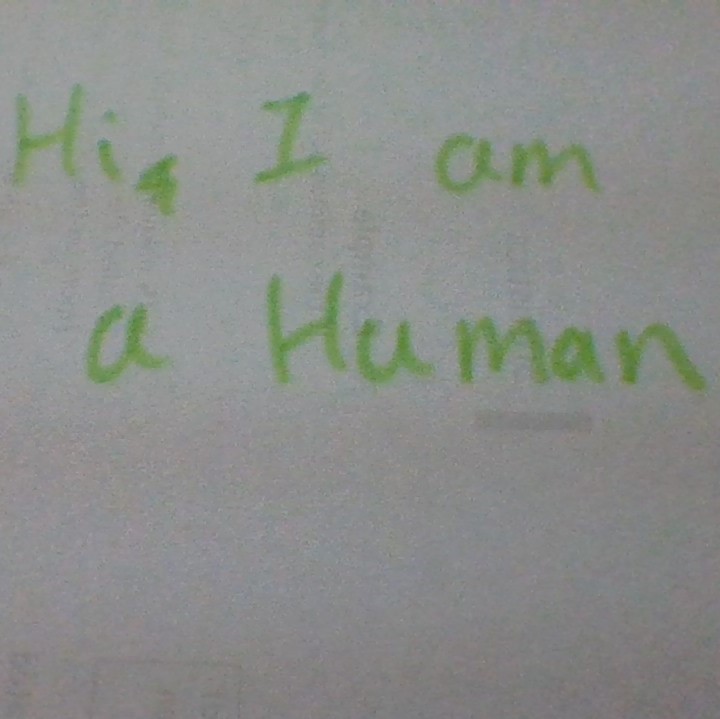 Hi, I am
a Human